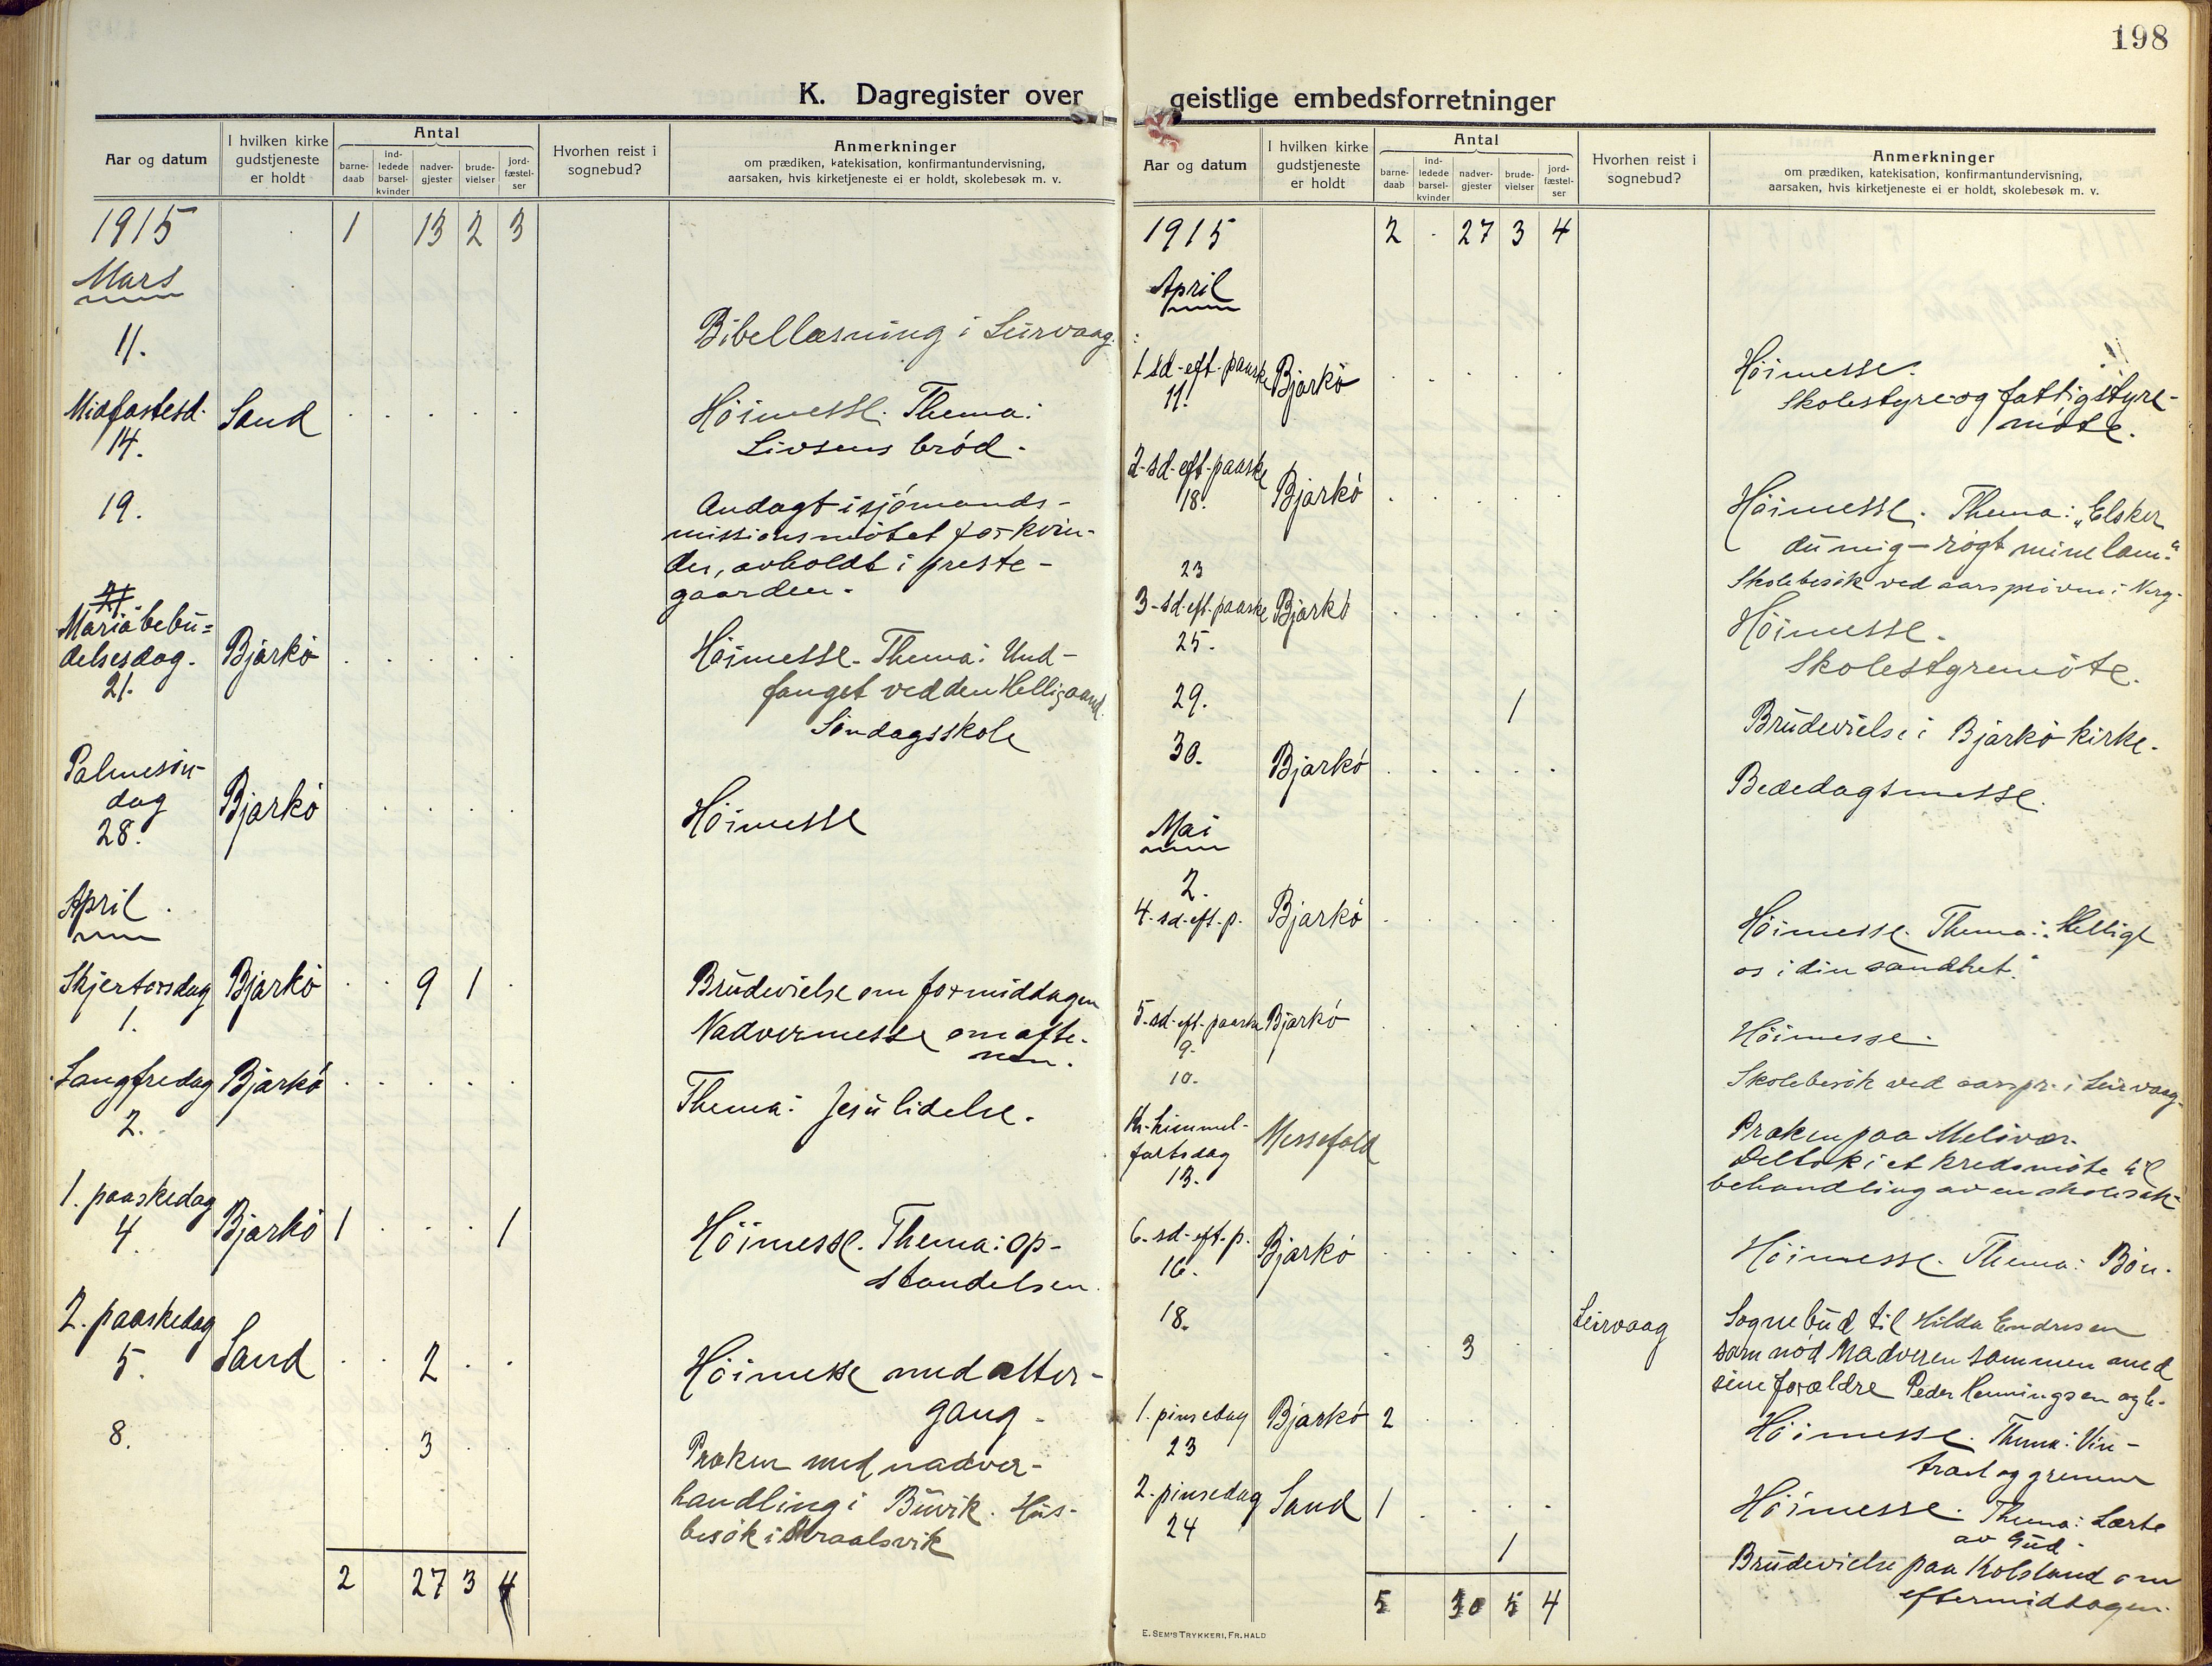 198
K. Dagregister over geistlige embedsforretninger
Aar og datum
I hvilken kirke gudstjeneste er holdt
Antal
barne-daab
ind-ledede barsel-kvinder
nadver-gjester
brude-vielser
jord-fæstel-ser
Hvorhen reist i sognebud?
Anmerkninger
om prædiken, katekisation, konfirmantundervisning,
aarsaken, hvis kirketjeneste ei er holdt, skolebesøk m. v.
1915 1 13 2 3
Mars
11. Bibellæsning i Leirvaag.
Midfastesd. Sand Höimesse. Thema:
14. Livsens bröd.
19. Andagt i sjömands-
missionsmötet for kvin-
der, avholdt i preste-
gaarden.
Mariä bebu=
delsesdag. Bjarkö Höimesse. Thema: Und-
21. fanget ved den Helligaand.
Söndagsskole
Palmesön-
dag Bjarkö Höimesse
28.
April
Skjertorsdag Bjarkö 9 1 Brudevielse om formiddagen
1. Nadvermesse om afte-
nen.
Langfredag Bjarkö Thema: Jesu lidelse.
2.
1. paaskedag
4. Bjarkö 1 1 Höimesse. Thema: op-
standelsen.
2. paaskedag
5. Sand 2 Höimesse med alter-
gang.
8. 3 Præken med nadver-
handling i Buvik. Hus-
besök i Skraalsvik
2 27 3 4
Aar og datum
I hvilken kirke gudstjeneste er holdt
Antal
barne-daab
ind-ledede barsel-kvinder
nadver-gjester
brude-vielser
jord-fæstel-ser
Hvorhen reist i sognebud?
Anmerkninger
om prædiken, katekisation, konfirmantundervisning,
aarsaken, hvis kirketjeneste ei er holdt, skolebesøk m. v.
1915 2 27 3 4
April
1. sd. eft. paaske Bjarkö Höimesse.
11. Skolestyre- og fattigstyre-
möte.
2. sd. eft. paaske
18. Bjarkö Höimesse. Thema: "Elsker
du mig – rögt mine lam."
23 Skolebesök ved aarspröven i Nerg.
3. sd. eft. paaske Bjarkö Höimesse.
25. Skolestyremöte.
29. 1 Brudevielse i Bjarkö kirke.
30. Bjarkö Bededagsmesse.
Mai
2.
4. sd. eft. p. Bjarkö Höimesse. Thema: "Hellige
os i din sandhet."
5. sd. eft. paaske Bjarkö Höimesse.
9.
10. Skolebesök ved aarspr. i Leirvaag.
Kr. himmel-
fartsdag Messefald Præken paa Melövær.
13. Deltok i et kredsmöte til
behandling av en skolesak.
6. sd. eft. p.
16. Bjarkö Höimesse. Thema: Bön.
18. Leirvaag Sognebud til Hilda Endresen
3 som nöd Nadveren sammen med
sine forældre Peder Henningsen og h.
1. pinsedag Bjarkö 2 Höimesse. Thema: Vin-
23 træet og grenene
2. pinsedag Sand 1 Höimesse. Thema: Lærte
24 av Gud.
1 Brudevielse paa Kolsland om
eftermiddagen.
5 30 5 4
E. SEM'S TRYKKERI, FR.HALD